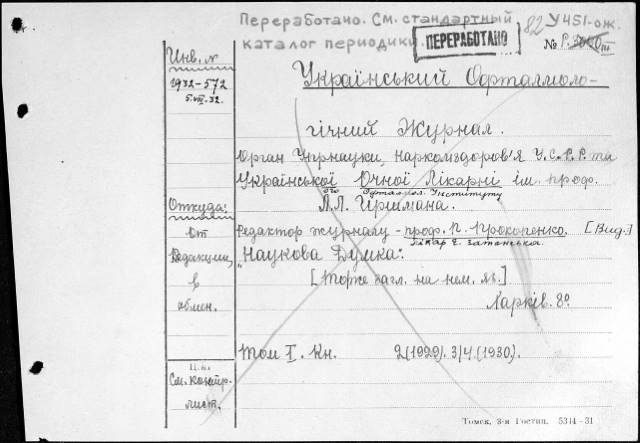 Переработано. См. стандартный
каталог периодики
ПЕРЕРАБОТАНО
82 У451-ож.
№ Р.
Инв. №
1932-572
5.VII.32.
Український Офталмоло-
гічний Журнал.
Орган Упрнауки, Наркомздоров'я У.С.Р.Р. та
Української Очної Лікарні ім. проф.
го Офталмол. Інституту
Л.Л. Гіршмана.
Откуда:
От
Редакции,
в
обмен.
Редактор журналу - проф. П. Прокопенко. [Вид.]
лікар Є.
„Наукова Думка".
[Тоже загл. на нем. яз.]
Харків. 8º
Том I. Кн. 2(1929). 3/4 (1930).
См. контр.
лист.
Томск, 3-я Гостип. 5314-31